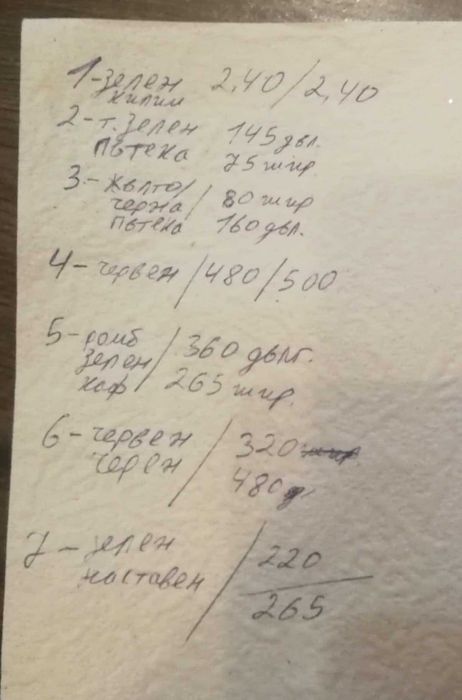 1-зелен 2,40/2,40
килим
2-т.зелен 145 дъл.
пътека 75 шир.
3-жълто/ 80 шир
черна 160 дъл.
пътека
4-червен/480/500
5-ромб / 360 дълг.
зелен 265 шир.
каф
6-червен / 320
черен 480 д
7-зелен / 220
наставен 265